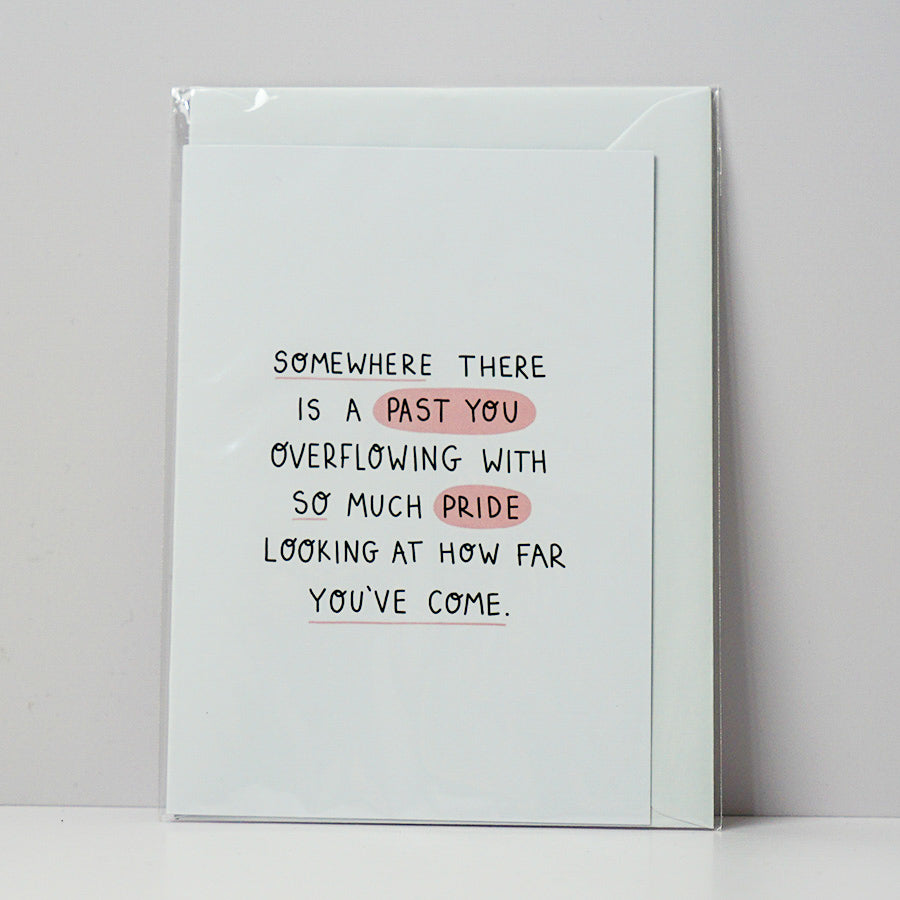 SOMEWHERE THERE
IS A PAST YOU
OVERFLOWING WITH
SO MUCH PRIDE
LOOKING AT HOW FAR
YOU'VE COME.